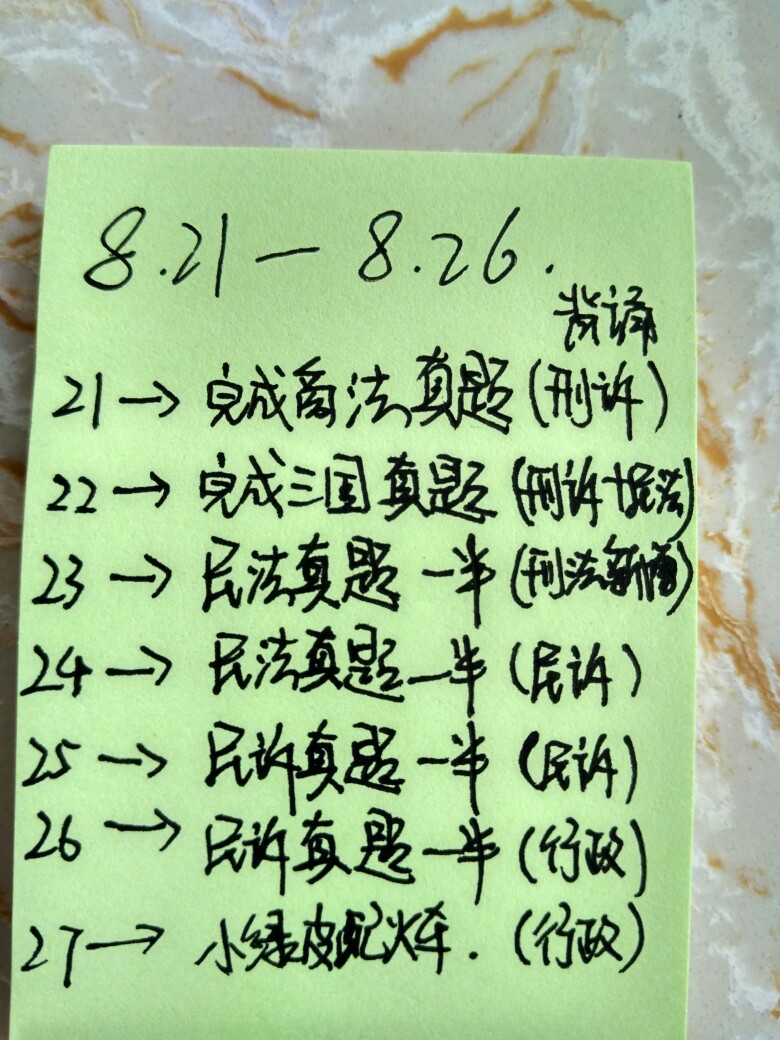 8.21 — 8.26.
背诵
21 → 完成商法真题 (刑诉)
22 → 完成三国真题 (刑诉+民法)
23 → 民法真题一半 (刑法新增)
24 → 民法真题一半 (民诉)
25 → 民诉真题一半 (民诉)
26 → 民诉真题一半 (行政)
27 → 小绿皮配火车. (行政)